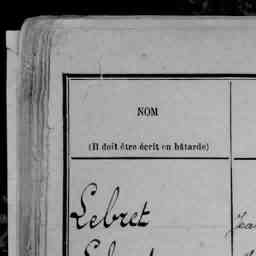 NOM
(Il doit être écrit en bâtarde)
Lebret